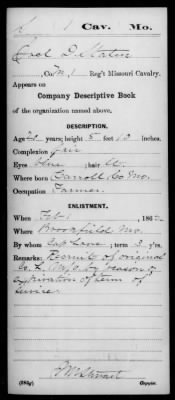 1 Cav. Mo.
Co. M, 1 Reg't Missouri Cavalry.
Appears on
Company Descriptive Book
of the organization named above.
DESCRIPTION.
Age years; height 5 feet 10 inches.
Complexion fair
Eyes blue; hair
Where born Carroll Co Mo.
Occupation Farmer.
ENLISTMENT.
When Feb 1, 186
Where Brookfield Mo.
By whom Cap Lane; term 3 y'rs.
Remarks: Recruit of original
Co. by reason of
expiration of term of
service
(383g) Copyist.